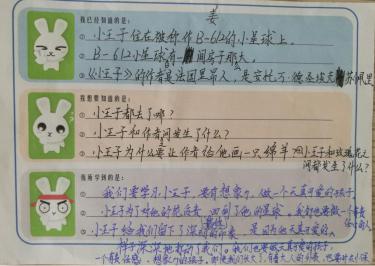 姜
我已经知道的是:
① 小王子住在被称作B-612的小星球上。
② B-612小星球有一间房子那大。
③ 《小王子》的作者是法国军人，是安托万·德圣埃克苏佩里
我想要知道的是:
① 小王子都去了哪?
② 小王子和作者间发生了什么?
③ 小王子为什么要让作者给他画一只绵羊 小王子和玫瑰花之
间都发生了什么?
我所学到的是:
① 我们要学习小王子，要有想象力，做一个天真可爱的孩子
② 小王子为了对他的玫瑰花 回到了他的星球。我们也要做一个有责
任心的人
③ 小王子给我们留下了深刻的印象，是因为他天真可爱。
样子深深地打动了我们。我们也要做天真可爱的
一个有责任感、想象力的孩子。即使我们长大了，有着大人的外表，也要有小孩